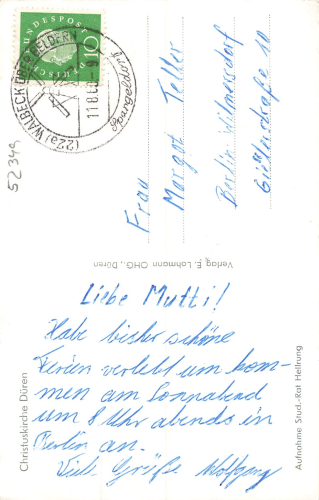 DEUTSCHE BUNDESPOST
10
(22a) WALBECK ÜBER GELDERN
11.8.60-9
Spargeldorf
52349
Frau
Margot Teller
Berlin-Wilmersdorf
Verlag E. Lohmann OHG., Düren
Liebe Mutti!
Habe bisher schöne
Ferien verlebt um kom-
men am Sonnabend
um 8 Uhr abends in
Berlin an.
Viele Grüße Wolfgang
Christuskirche Düren
Aufnahme Stud.-Rat Hellrung